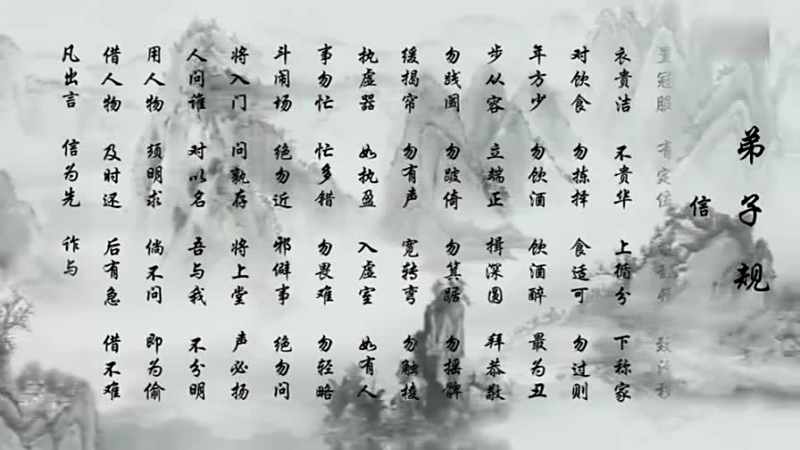 弟子规
信
冠服 有定位
衣贵洁 不贵华 上循分 下称家
对饮食 勿拣择 食适可 勿过则
年方少 勿饮酒 饮酒醉 最为丑
步从容 立端正 揖深圆 拜恭敬
勿践阈 勿跛倚 勿箕踞 勿摇髀
缓揭帘 勿有声 宽转弯 勿触棱
执虚器 如执盈 入虚室 如有人
事勿忙 忙多错 勿畏难 勿轻略
斗闹场 绝勿近 邪僻事 绝勿问
将入门 问孰存 将上堂 声必扬
人问谁 对以名 吾与我 不分明
用人物 须明求 倘不问 即为偷
借人物 及时还 后有急 借不难
凡出言 信为先 诈与